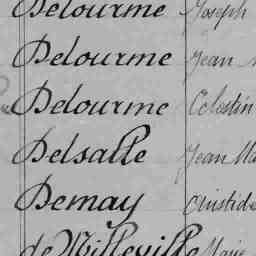 Delourme Joseph
Delourme Jean
Delourme Célestin
Delsalle Jean Ma
Demay Aristide
de Milleville Marie